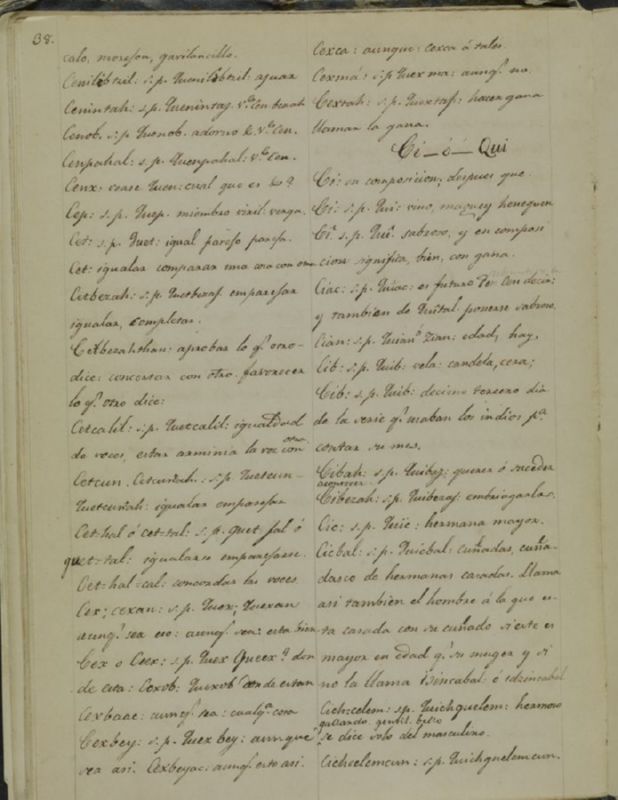 38.
calo, moreson, gavilancillo.
Cenilibtzil: s.p. Quenilibtzil: ajuar
Cenintah: s.p. Quenintaj.
Cenob. s.p. Quenob. adorno
Cenpahal: s.p. Quenpahal:
Cenx: cease Quen: cual que es
Cep: s.p. Quep. miembro viril: verga.
Cet: s.p. Quet: igual parejo pareja.
Cet: igualar comparar una cosa con otra
Cetbezah: s.p. Quetbezaj. emparejar
igualar, completar.
Cetbezahthan: aprobar lo q.e otro
dice: concertar con otro. favorecer
lo q.e otro dice:
Cetcalil: s.p. Quetcalil: igualdad
de voces, estar arminia la voz con otra
Cetcun. Cetcunah: s.p. Quetcun-
Quetcunah: igualar emparejar
Cet-hal ó cet-tal: s.p. Quet-jal ó
quet-tal: igualarse emparejarse.
Cet-hal-cal: concordar las voces
Cex; cexan: s.p. Quex; Quexan
aunq.e sea eso: aunq.e sea: esta bien
Cex o Ceex: s.p. Quex Queex. don
de esta: Cexob: Quexob donde estan
Cexbaae: aunq.e sea: cualq.a cosa
Cexbey: s.p. Quexbey: aunque
sea asi. Cexbeyac: aunq.e esto asi.
Cexca: aunque: cexca ó tales.
Cexmá: s.p. Quexma: aunq.e no.
Cextah: s.p. Quextaj: hacer gana
llamar la gana.
Ci — ó — Qui
Ci: en composicion, despues que.
Ci: s.p. Qui: vino, maguey henequen
Ci. s.p. Qui. sabroso, y en composi
cion significa, bien, con gana.
Ciac: s.p. Quiac: es futuro de Cen decir;
y tambien de Quital ponerse sabroso.
Cian: s.p. Quian: edad, hay,
Cib: s.p. Quib: vela: candela, cera;
Cib: s.p. Quib: decimo tercero dia
de la serie q.e usaban los indios p.a
contar su mes.
Cibah: s.p. Quibaj: querer ó suceder
Cibezah: s.p. Quibezaj: embriagarlos.
Cic: s.p. Quic: hermana mayor.
Cicbal: s.p. Quicbal: cuñadas, cuña-
dasco de hermanas casadas. Llama
asi tambien el hombre á la que es-
ta casada con su cuñado si este es
mayor en edad q.e su muger y si
no la llama
Cichcelem: s.p. Quichquelem: hermoso
gallardo gentil. bello
se dice solo del masculino.
Cichcelemcun: s.p. Quichquelemcun.